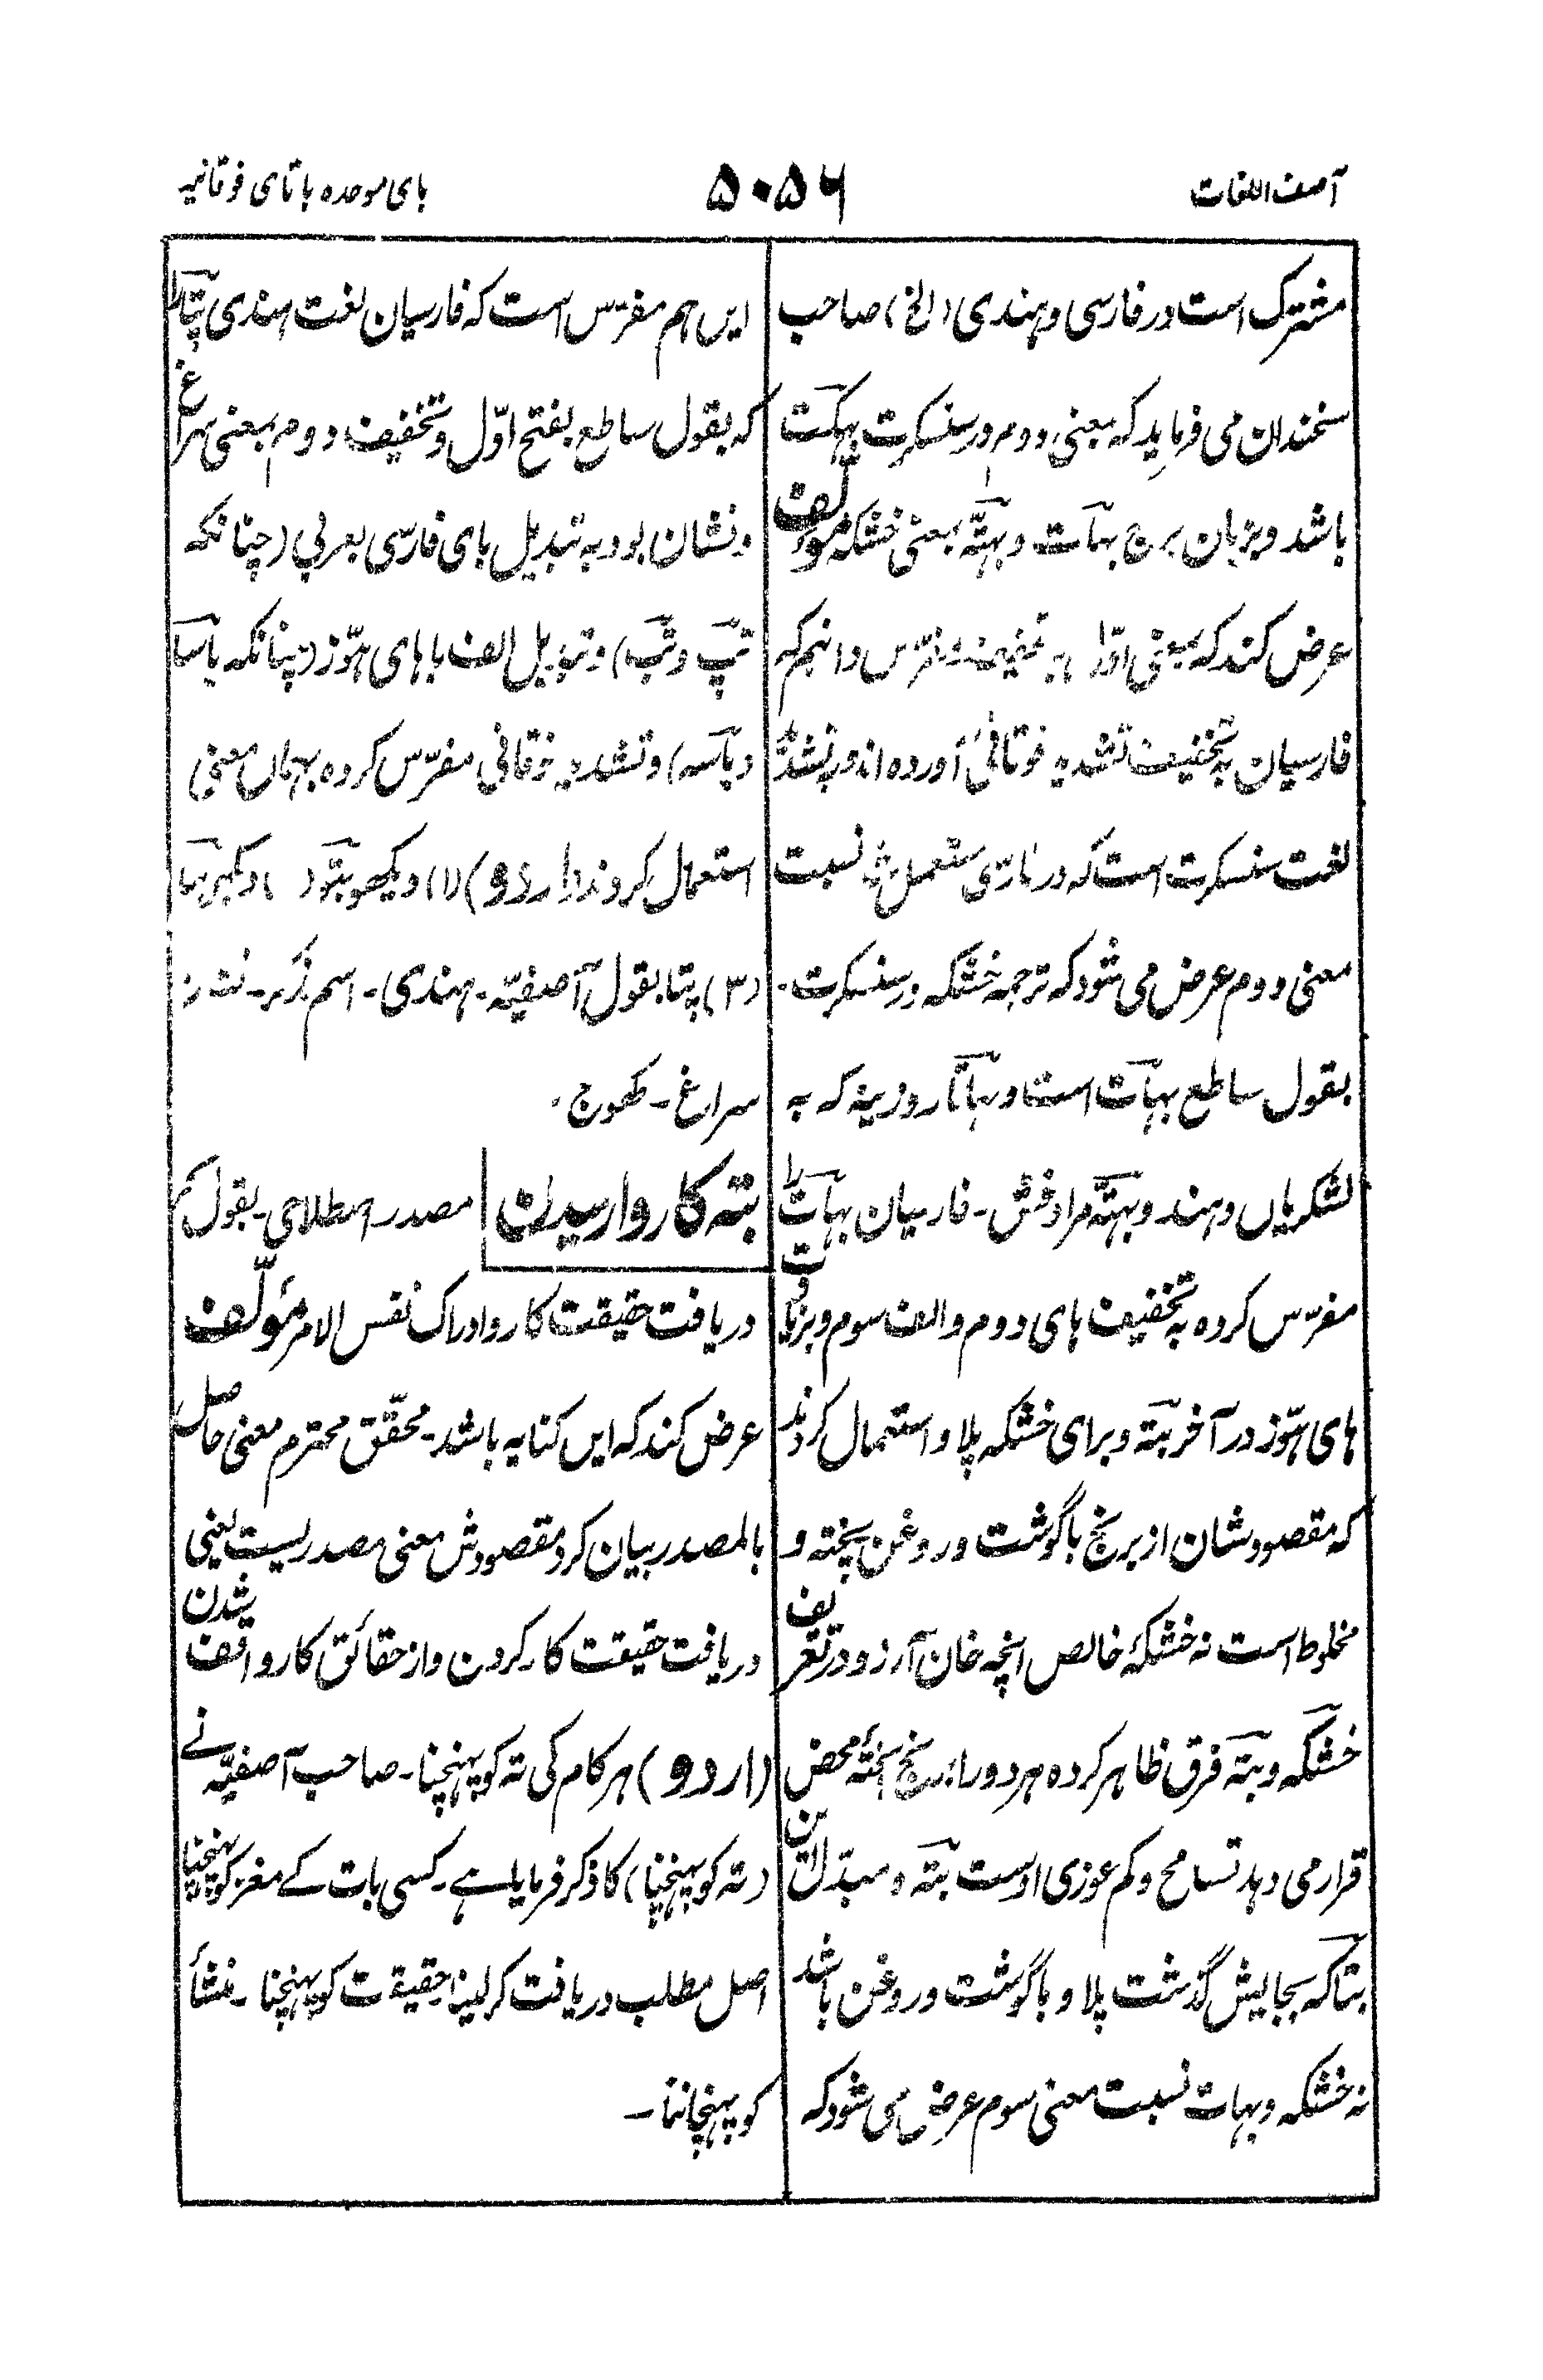 آصف اللغات ۵۰۵۶ بای موحده با تای فوقانیہ
مشترک است در فارسی و ہندی (الخ) صاحب
سخندان می فرماید کہ بمعنی دوم در سنسکرت بهکت
باشد و بزبان برج بہات و بہتّہ بمعنی خشکہ مؤلف
عرض کند کہ بمعنی اوّل بہ تخفیف مفرّس دانیم کہ
فارسیان بہ تخفیف تشدید فوقانی آورده اند و بتشدید
لغت سنسکرت است کہ در فارسی مستعمل شد نسبت
معنی دوم عرض می شود کہ ترجمہ خشکہ در سنسکرت۔
بقول ساطع بہات است و بہاتّا روزینہ کہ بہ
لشکریاں دہند و بہتّہ مرادفش۔ فارسیان بہات را
مفرّس کرده بہ تخفیف ہای دوم و الف سوم و بزیادت
ہای ہوّز در آخر بتہ و برای خشکہ پلاو استعمال کردند
کہ مقصود شان از برنج با گوشت و روغن پختہ و
مخلوط است نہ خشکۂ خالص انچہ خان آرزو در تعریف
خشکہ و بتہ فرق ظاہر کرده ہر دو را برنج پختۂ محض
قرار می دہد تسامح و کم غوری اوست بتّہ و مبدّل آن
بتا کہ بجایش گذشت پلاو با گوشت و روغن باشد
نہ خشکہ و بہات نسبت معنی سوم عرض می شود کہ
ایں ہم مفرّس است کہ فارسیان لغت ہندی پتا را
کہ بقول ساطع بفتح اوّل و تخفیف دوم بمعنی سراغ
و نشان بود بہ تبدیل بای فارسی بعربی (چنانکہ
تپ و تب) و تبدیل الف با ہای ہوّز (چنانکہ یاسا
و یاسہ) و تشدید فوقانی مفرّس کرده بہماں معنی
استعمال کردند (اردو) (۱) دیکھو بتّو ( ) دیکھو بہتا
(۳) پتا بقول آصفیّہ۔ ہندی۔ اسم مذکر۔ نشان
سراغ۔ کھوج۔
بتہ کار وارسیدن مصدر اصطلاحی۔ بقول
دریافت حقیقت کار و ادراک نفس الامر مؤلّف
عرض کند کہ ایں کنایہ باشد۔ محقّق محترم معنی حاصل
بالمصدر بیان کرد مقصودش معنی مصدریست یعنی
دریافت حقیقت کار کردن و از حقائق کار واقف شدن
(اردو) ہر کام کی تہ کو پہنچنا۔ صاحب آصفیّہ نے
(تہ کو پہنچنا) کا ذکر فرمایا ہے۔ کسی بات کے مغز کو پہنچنا
اصل مطلب دریافت کرلینا۔ حقیقت کو پہنچنا۔ منشأ
کو پہچاننا۔